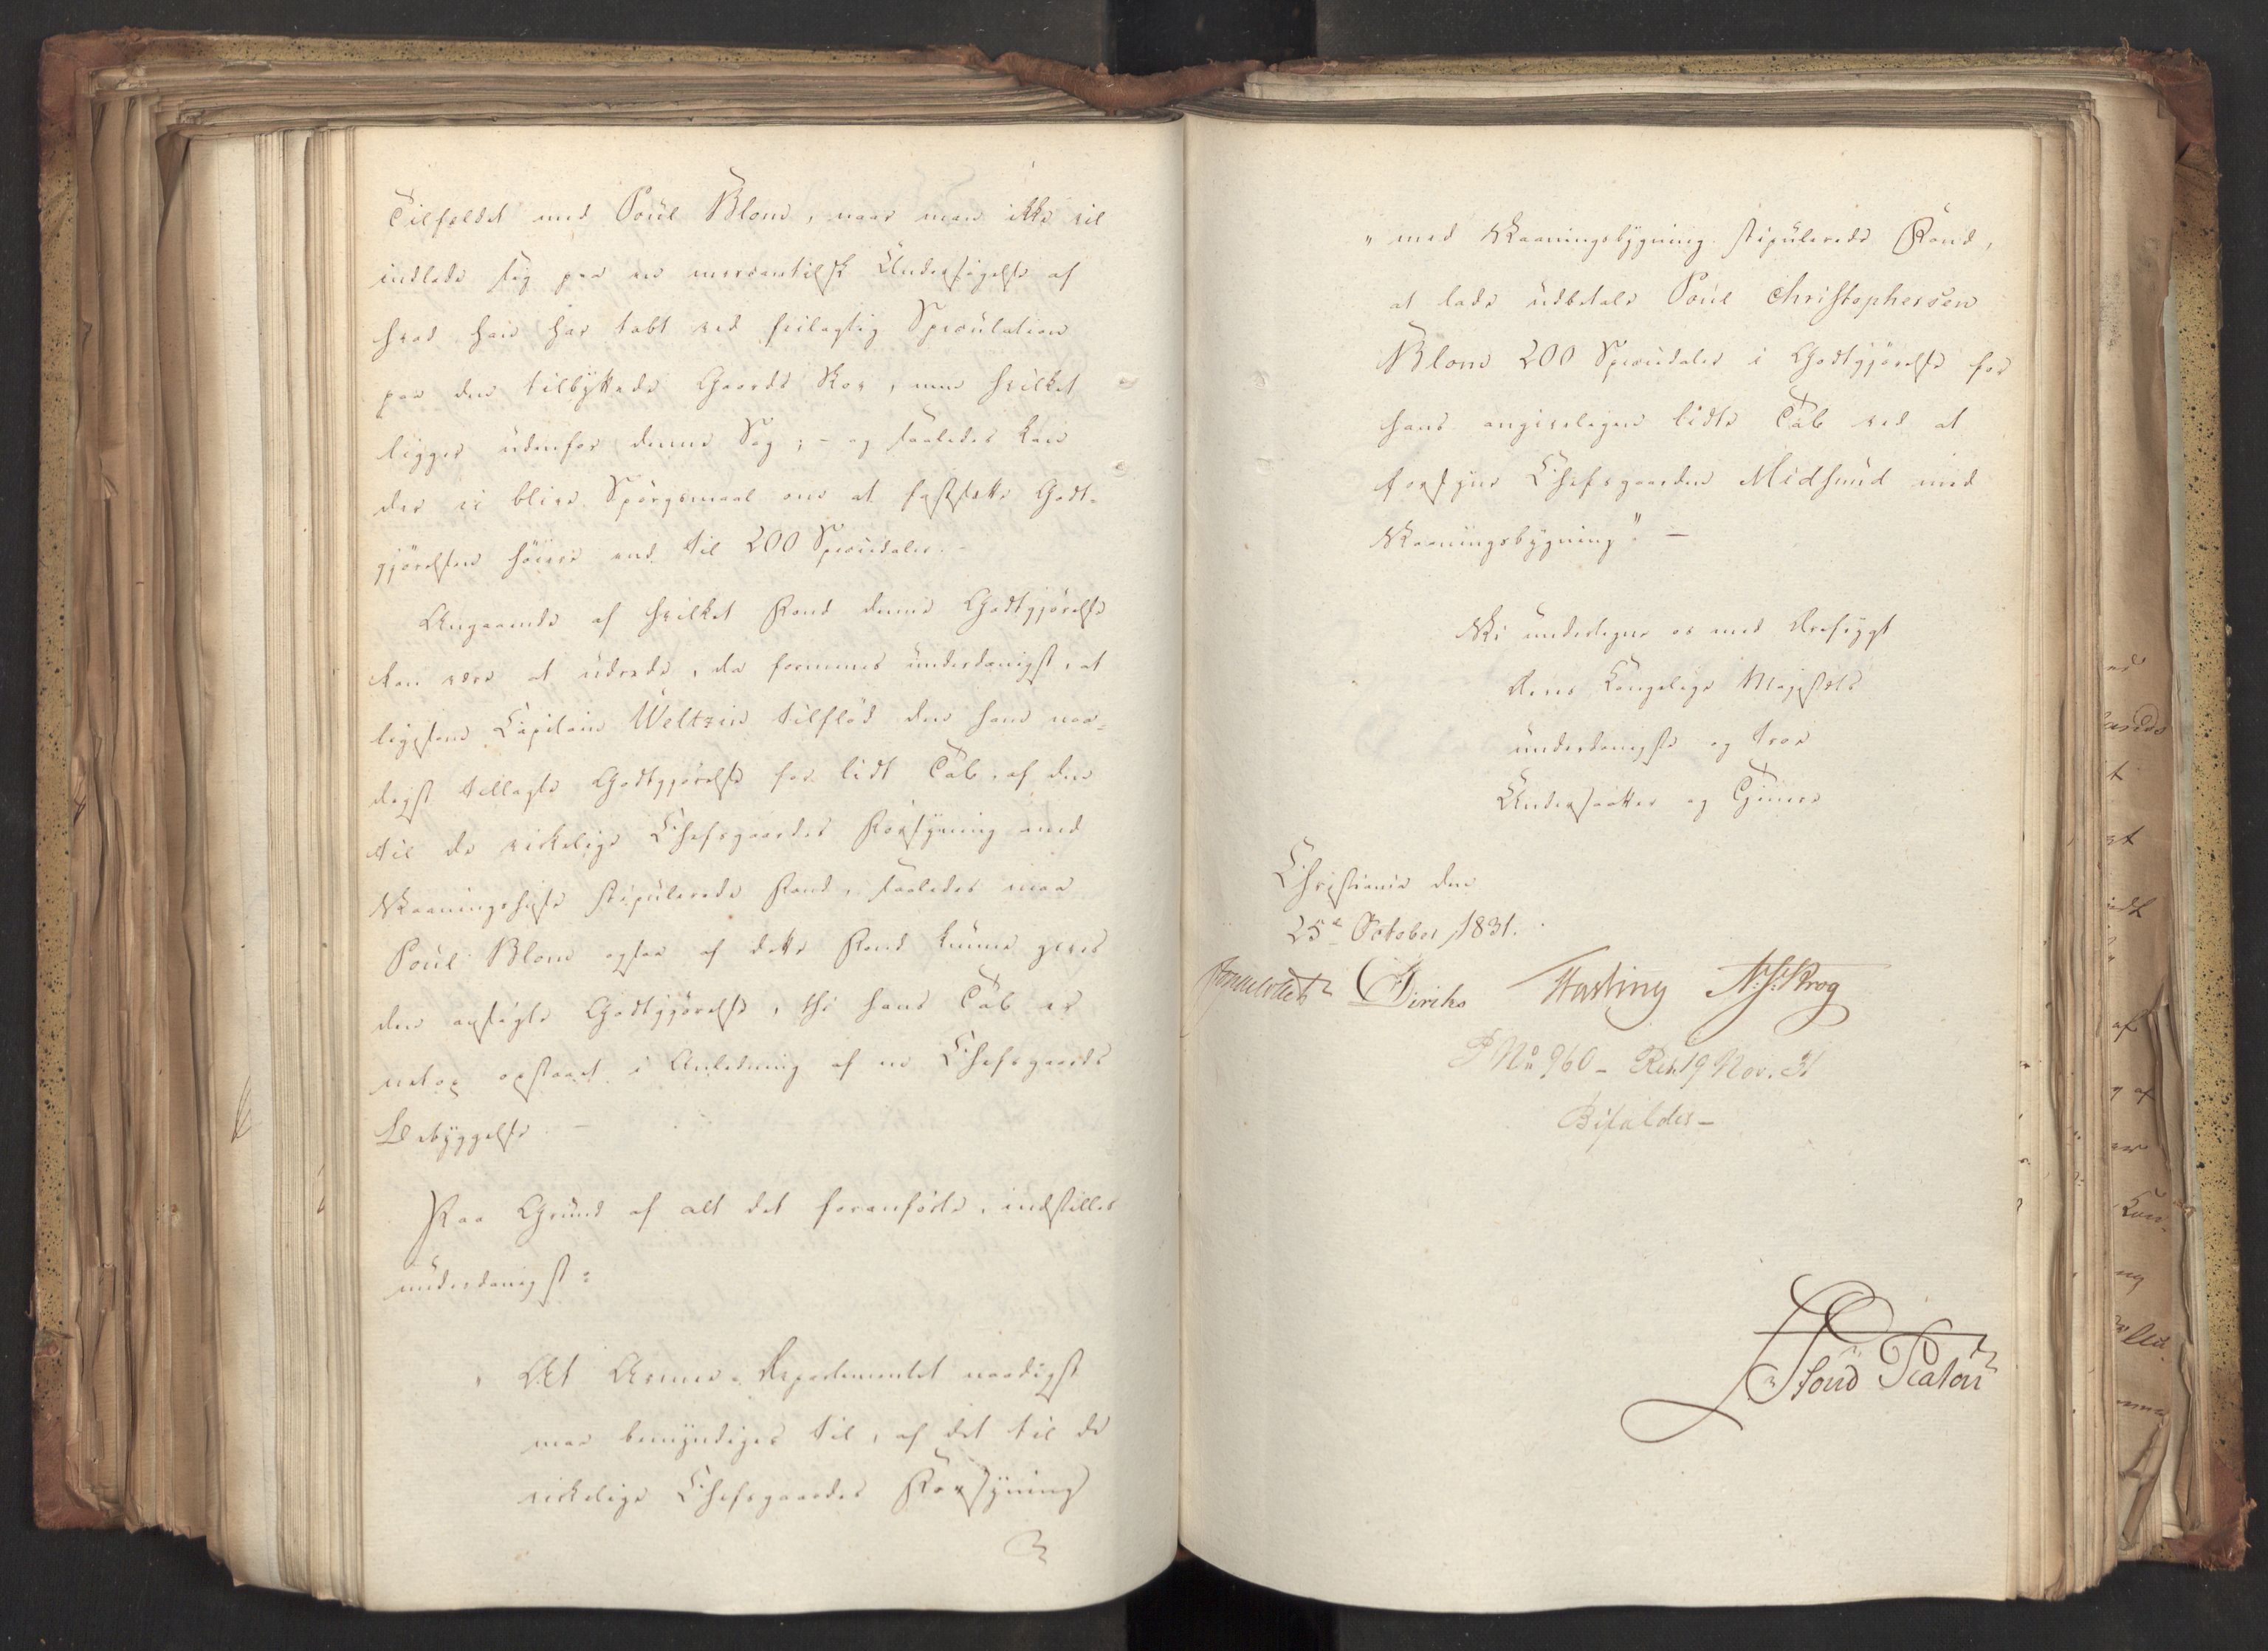 Tilfældet med Poul Blom, naar man ikke vil
indlade sig paa en mercantilsk Undersøgelse af
hvad han har tabt ved feilagtig Speculation
paa den tilbyttede Gaards Skov, men hvilket
ligger udenfor denne Sag; – og saaledes kan
der ei blive Spørgsmaal om at fastsætte Godt-
gjørelsen høiere end til 200 Speciedaler. –
Angaaende af hvilket Fond denne Godtgjørelse
kan være at udrede, da formenes underdanigst, at
ligesom Capitain Weltzin tilflød den ham naa-
digst tillagte Godtgjørelse for lidt Tab, af den
til de virkelige Chefsgaardes Forsyning med
Vaaningshuse stipulerede Fond, saaledes maa
Poul Blom ogsaa af dette Fond kunne gives
den ansøgte Godtgjørelse, thi hans Tab er
netop opstaaet i Anledning af en Chefsgaards
Bebyggelse. –
Paa Grund af alt det foranførte, indstilles
underdanigst:
„ At Armee-Departementet naadigst
maa bemyndiges til, af det til de
virkelige Chefsgaardes Forsyning
„ med Vaaningsbygning stipulerede Fond,
at lade udbetale Poul Christophersen
Blom 200 Speciedaler i Godtgjørelse for
hans angiveligen lidte Tab ved at
forsyne Chefsgaarden Midsund med
Vaaningsbygning". –
Vi undertegne os med Ærefrygt
Deres Kongelige Majestæts
underdanigste og troe
Undersaatter og Tjenere
Christiania den
25de October 1831.
Diriks Fasting N: J: Krog
P No 960 – Res. 19 Nov. 31
Bifaldes –